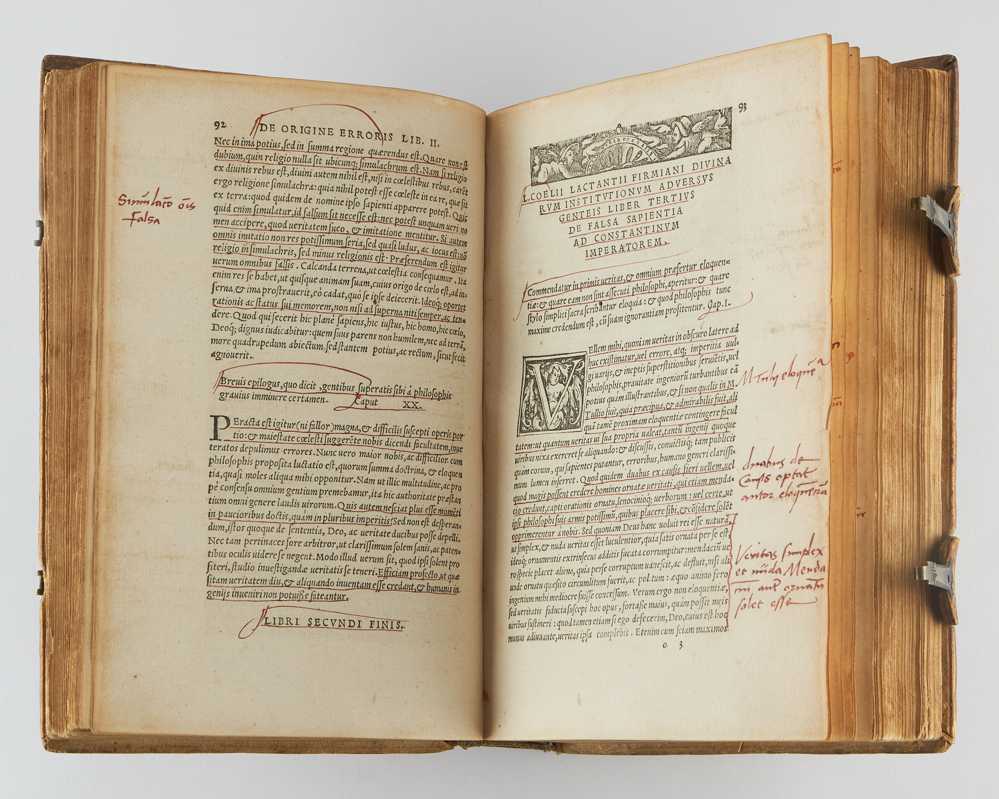 92
DE ORIGINE ERRORIS LIB. II.
Nec in ima potius, sed in summa regione quærendus est. Quare non est
dubium, quin religio nulla sit ubicunq; simulachrum est. Nam si religio
ex diuinis rebus est, diuini autem nihil est, nisi in cœlestibus rebus, carēt
ergo religione simulachra: quia nihil potest esse cœleste in ea re, quæ fit
ex terra: quod quidem de nomine ipso sapienti apparere potest. Quic
quid enim simulatur, id falsum sit necesse est: nec potest unquam ueri no
men accipere, quod ueritatem fuco, & imitatione mentitur. Si autem
omnis imitatio non res potissimum seria, sed quasi ludus, ac iocus est: nō
religio in simulachris, sed mimus religionis est. Præferendum est igitur
uerum omnibus falsis. Calcanda terrena, ut cœlestia consequamur. Ita
enim res se habet, ut quisquis animam suam, cuius origo de cœlo est, ad in-
ferna, & ima prostrauerit, eò cadat, quò se ipse deiecerit. Ideoq; oportet
rationis ac status sui memorem, non nisi ad superna niti semper, ac ten-
dere: Quod qui fecerit hic planè sapiens, hic iustus, hic homo, hic cœlo,
Deoq; dignus iudicabitur: quem suus parens non humilem, nec ad terrā,
more quadrupedum abiectum sed stantem potius, ac rectum, sicut fecit
agnouerit.
Simulatio ois
Falsa
Breuis epilogus, quo dicit, gentibus superatis sibi à philosophis
grauius imminere certamen. Caput XX.
PEracta est igitur (ni fallor) magna, & difficilis suscepti operis por
tio: & maiestate cœlesti suggerēte nobis dicendi facultatem, inue
teratos depulimus errores. Nunc uero maior nobis, ac difficilior cum
philosophis proposita luctatio est, quorum summa doctrina, & eloquen
tia, quasi moles aliqua mihi opponitur. Nam ut illic multitudine, ac pro
pè consensu omnium gentium premebamur, ita hic authoritate præstan
tium omni genere laudis uirorum. Quis autem nesciat plus esse momēti
in paucioribus doctis, quàm in pluribus imperitis? Sed non est desperan-
dum, istos quoque de sententia, Deo, ac ueritate ducibus posse depelli.
Nec tam pertinaces fore arbitror, ut clarissimum solem sanis, ac paten-
tibus oculis uidere se negent. Modo illud uerum sit, quod ipsi solent pro
fiteri, studio inuestigandæ ueritatis se teneri. Efficiam profecto, ut quæ
sitam ueritatem diu, & aliquando inuentam esse credant, & humanis in
genijs inueniri non potuisse fateantur.
LIBRI SECVNDI FINIS.
93
L. COELII LACTANTII FIRMIANI DIVINA
RVM INSTITVTIONVM ADVERSVS
GENTEIS LIBER TERTIVS
DE FALSA SAPIENTIA
AD CONSTANTINVM
IMPERATOREM.
Commendatur in primis ueritas, & omnium præfertur eloquen-
tiæ: & quare eam non sint assecuti philosophi, aperitur: & quare
stylo simplici sacra scribantur eloquia: & quod philosophis tunc
maxime credendum est, cū suam ignorantiam profitentur. Cap. I.
VEllem mihi, quoniam ueritas in obscuro latere ad
huc existimatur, uel errore, atq; imperitia uul
gi uarijs, & ineptis superstitionibus seruientis, uel
philosophis, prauitate ingeniorū turbantibus eā
potius quàm illustrantibus, & si non qualis in M.
Tullio fuit, quia præcipua, & admirabilis fuit, ali
quā tamē proximam eloquentiæ contingere facul
tatem: ut quantum ueritas ui sua propria ualeat, tantū ingenij quoque
uiribus nixa exereret se aliquando: & discussis, conuictisq; tam publicis
quàm eorum, qui sapientes putantur, erroribus, humano generi clarissi-
mum lumen inferret. Quod quidem duabus ex causis fieri uellem, uel
quod magis possent credere homines ornatæ ueritati, qui etiam menda-
cio credunt, capti orationis ornatu, lenocinioq; uerborum: uel certe, ut
ipsi philosophi suis armis potissimū, quibus placere sibi, & cōfidere solēt
opprimerentur à nobis. Sed quoniam Deus hanc uoluit rei esse naturā,
ut simplex, & nuda ueritas esset luculentior, quia satis ornata per se est,
ideoq; ornamentis extrinsecus additis fucata corrumpitur: mendaciū ue
ro specie placet aliena, quia per se corruptum uanescit, ac defluit, nisi ali
unde ornatu quæsito circunlitum fuerit, ac politum: æquo animo fero
ingenium mihi mediocre fuisse concessum. Verum ergo non eloquentiæ,
sed ueritatis fiducia suscepi hoc opus, fortasse maius, quàm possit meis
uiribus sustineri: quod tamen etiam si ego defecerim, Deo, cuius est hoc
munus adiuuante, ueritas ipsa complebit. Etenim cum sciam maximos
o 3
M. Tulij eloquē
duabus de
causis optat
autor eloquentiā
Veritas simplex
et nuda Menda
m autē ornatū
solet esse